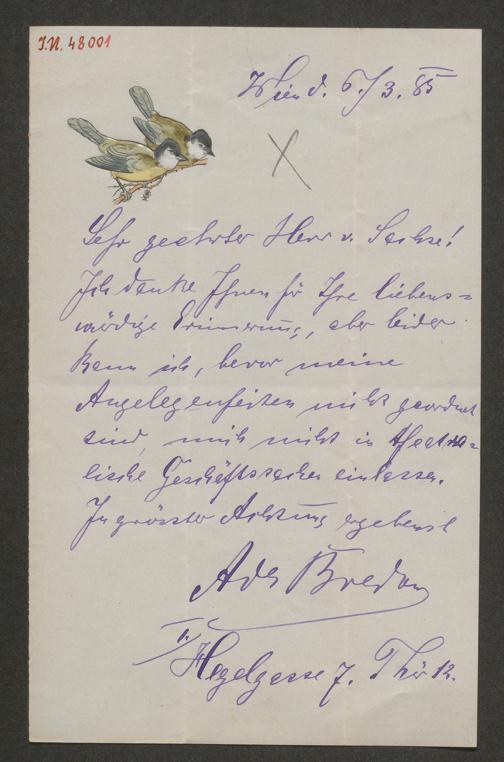 J.N. 48001
Wien d. 6./3. 85
Sehr geehrter Herr v. Sachse!
Ich danke Ihnen für Ihre liebens=
würdige Erinnerung, aber leider
kann ich, bevor meine
Angelegenheiten nicht geordnet
sind, mich nicht in theatra=
lische Geschäftssachen einlassen.
In grösster Achtung ergebenst
Ada Bredow
I. Hegelgasse 7. Thür 12.